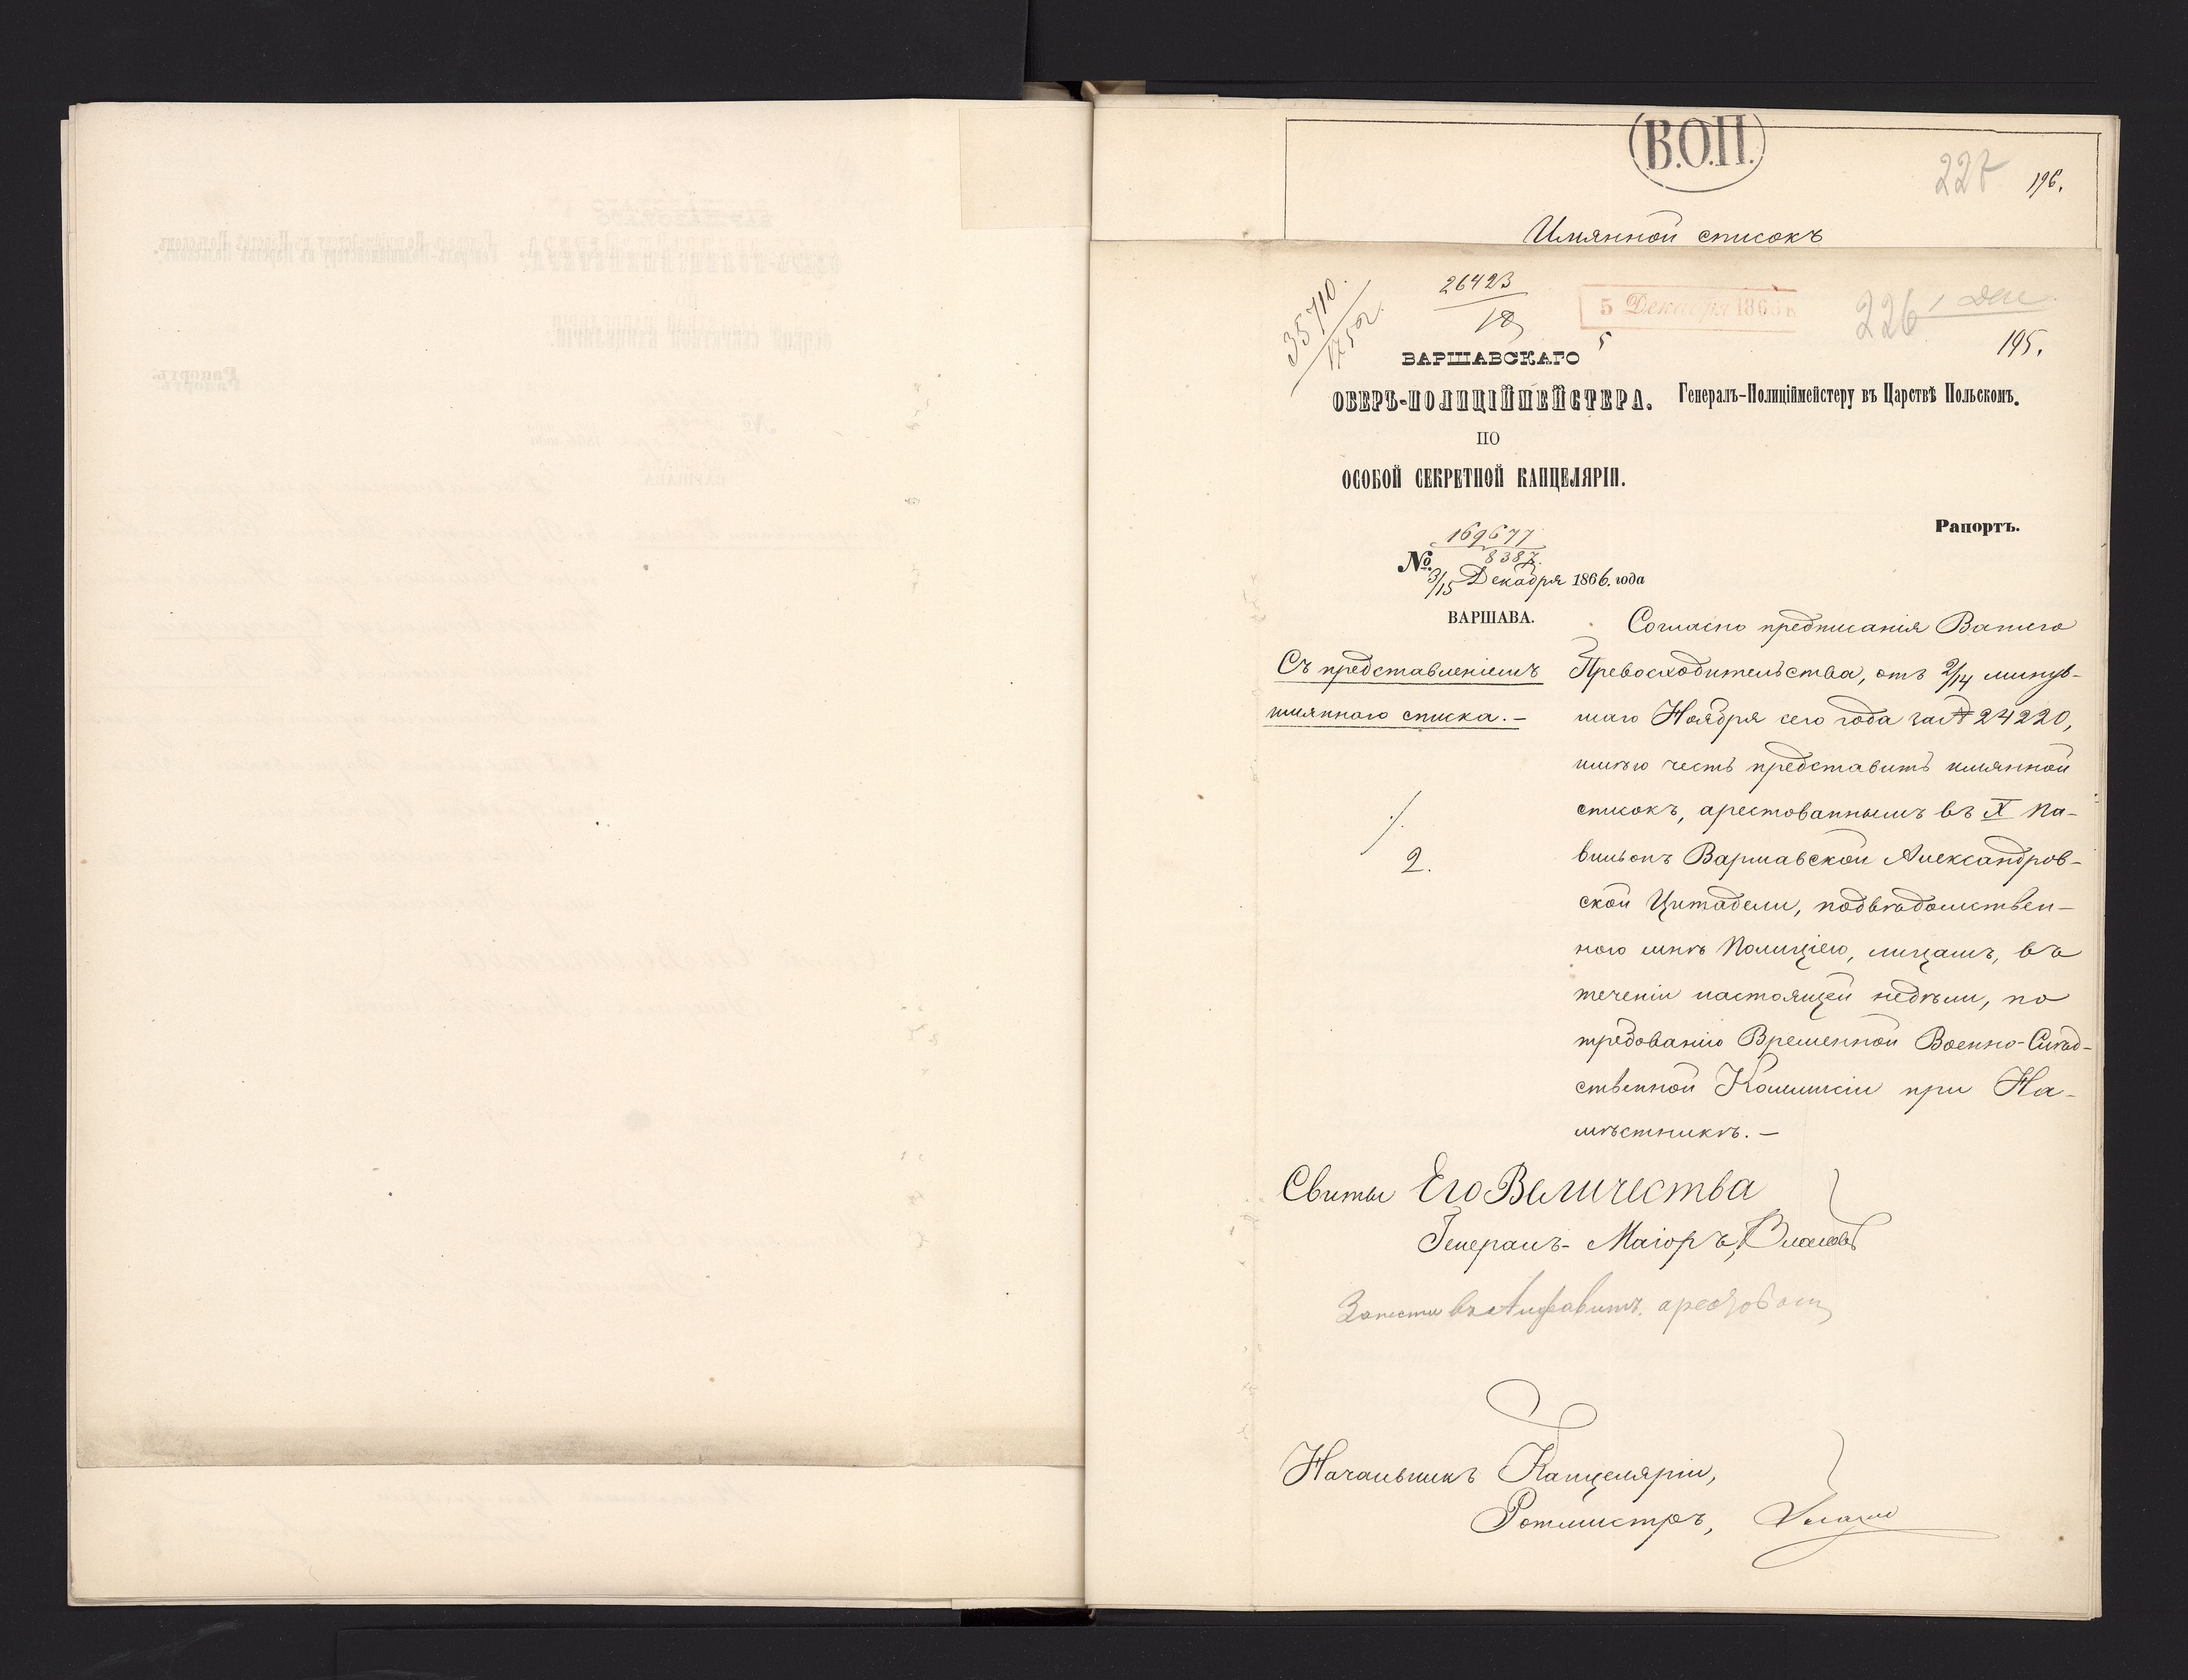 (В.О.П.)
227 196.
Имянной списокъ
35710.
26423
18
5 Декабря 186
226 1 Дек.
195.
5
ВАРШАВСКАГО
ОБЕРЪ-ПОЛИЦІЙМЕЙСТЕРА.
ПО
ОСОБОЙ СЕКРЕТНОЙ КАНЦЕЛЯРІИ.
169677
№ 8387.
3/15 Декабря 1866. года
ВАРШАВА.
Съ представленіемъ
имяннаго списка.—
·/.
2.
Генералъ-Полиціймейстеру въ Царствѣ Польскомъ.
Рапортъ.
Согласно предписанія Вашего
Превосходительства, отъ 2/14 минув-
шаго Ноября сего года за № 24220,
имѣю честь представить имянной
списокъ, арестованнымъ въ X Па-
вильонъ Варшавской Александров-
ской Цитадели, подвѣдомствен-
ною мнѣ Полиціею, лицамъ, въ
теченіи настоящей недѣли, по
требованію Временной Военно-Слѣд-
ственной Коммисіи при На-
мѣстникѣ.—
Свиты Его Величества
Генералъ-Маіоръ,
Занести въ Алфавитъ.
Начальникъ Канцеляріи,
Ротмистръ,